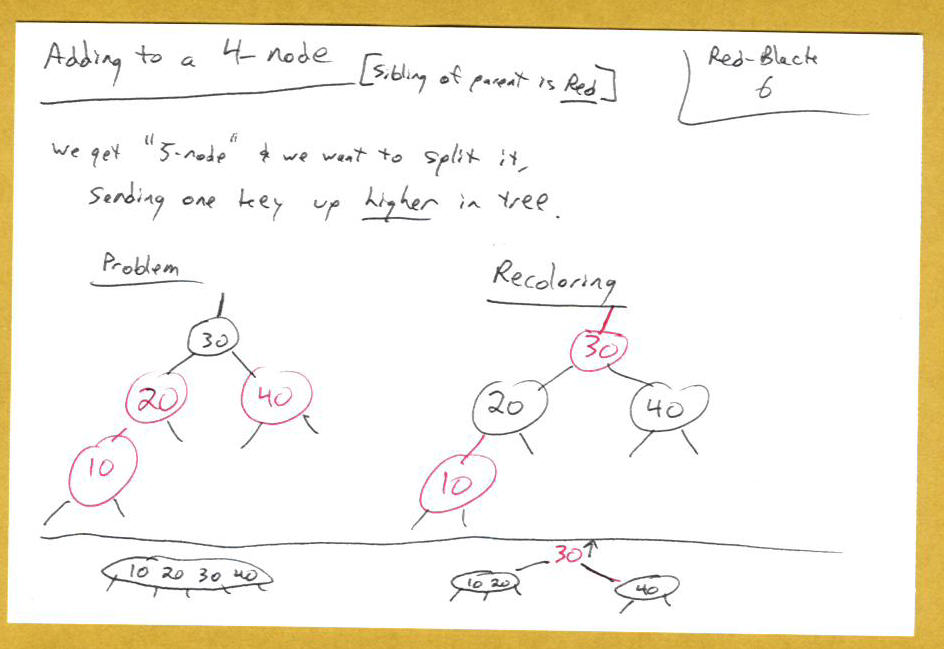 Adding to a 4-node [Sibling of parent is Red]
Red-Black
6
We get "5-node" & we want to split it,
Sending one key up higher in tree.
Problem
Recoloring
30
20
40
10
30
20
40
10
10 20 30 40
30
10 20
40